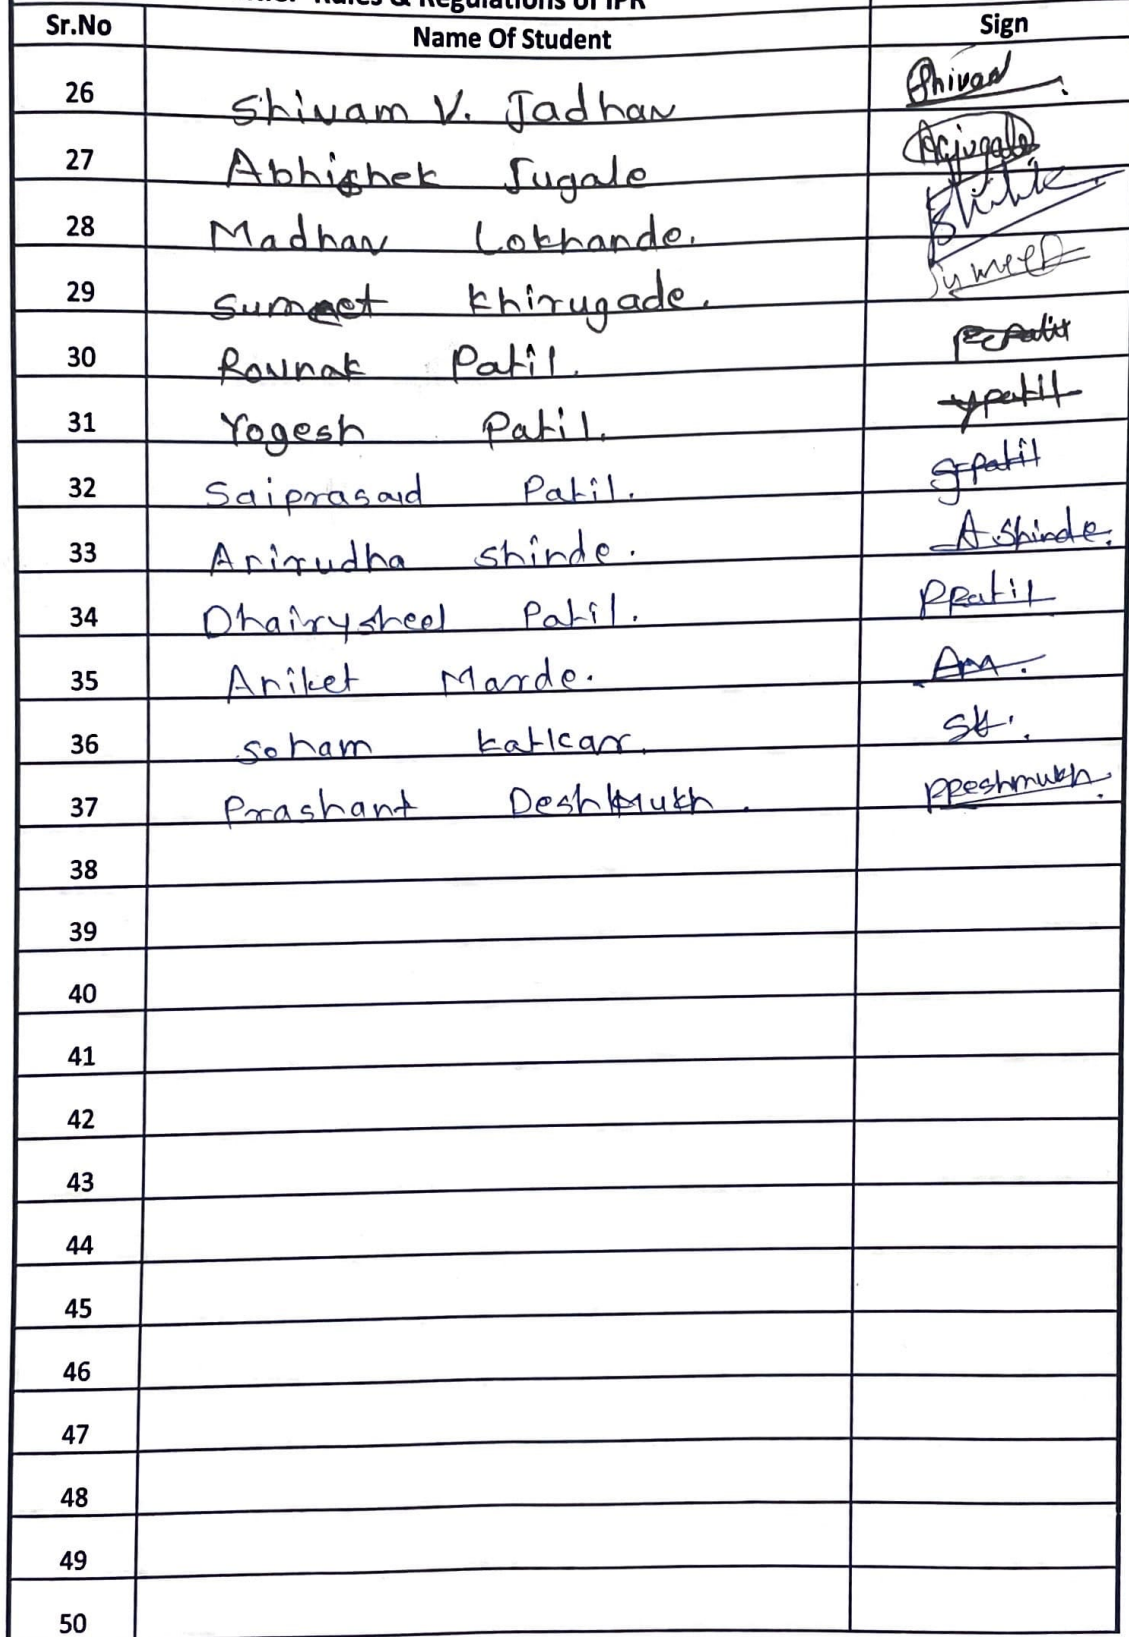 Rules & Regulations of IPR
Sr.No Name Of Student Sign
26 Shivam V. Jadhav Shivam
27 Abhishek Jugale AGjugale
28 Madhav Lokhande.
29 Sumeet Khirugade. Sumeet
30 Rounak Patil.
31 Yogesh Patil. ypatil
32 Saiprasad Patil. Spatil
33 Anirudha Shinde. A.Shinde.
34 Dhairysheel Patil. PPatil
35 Aniket Marde. Am.
36 Soham Katkar. SK.
37 Prashant Deshmukh. PDeshmukh.
38
39
40
41
42
43
44
45
46
47
48
49
50